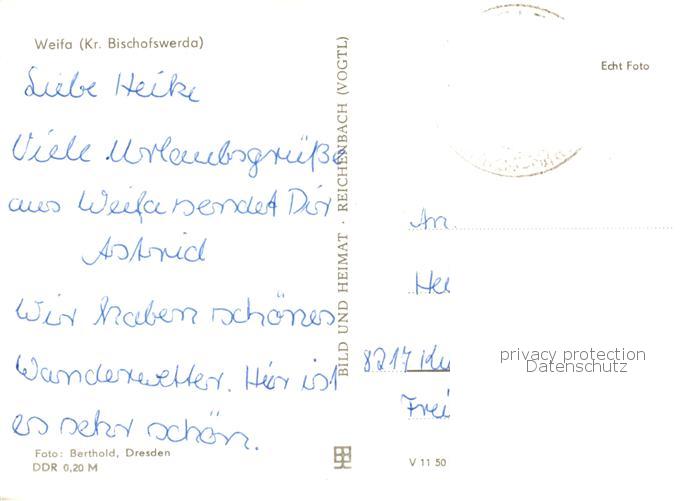 Weifa (Kr. Bischofswerda)
Liebe Heike
Viele Urlaubsgrüße
aus Weifa sendet Dir
Astrid
Wir haben schönes
Wanderwetter. Hier ist
es sehr schön.
Foto: Berthold, Dresden
DDR 0,20 M
BILD UND HEIMAT · REICHENBACH (VOGTL)
Echt Foto
An
Hei
8217 Ku
Frei
privacy protection
Datenschutz
V 11 50